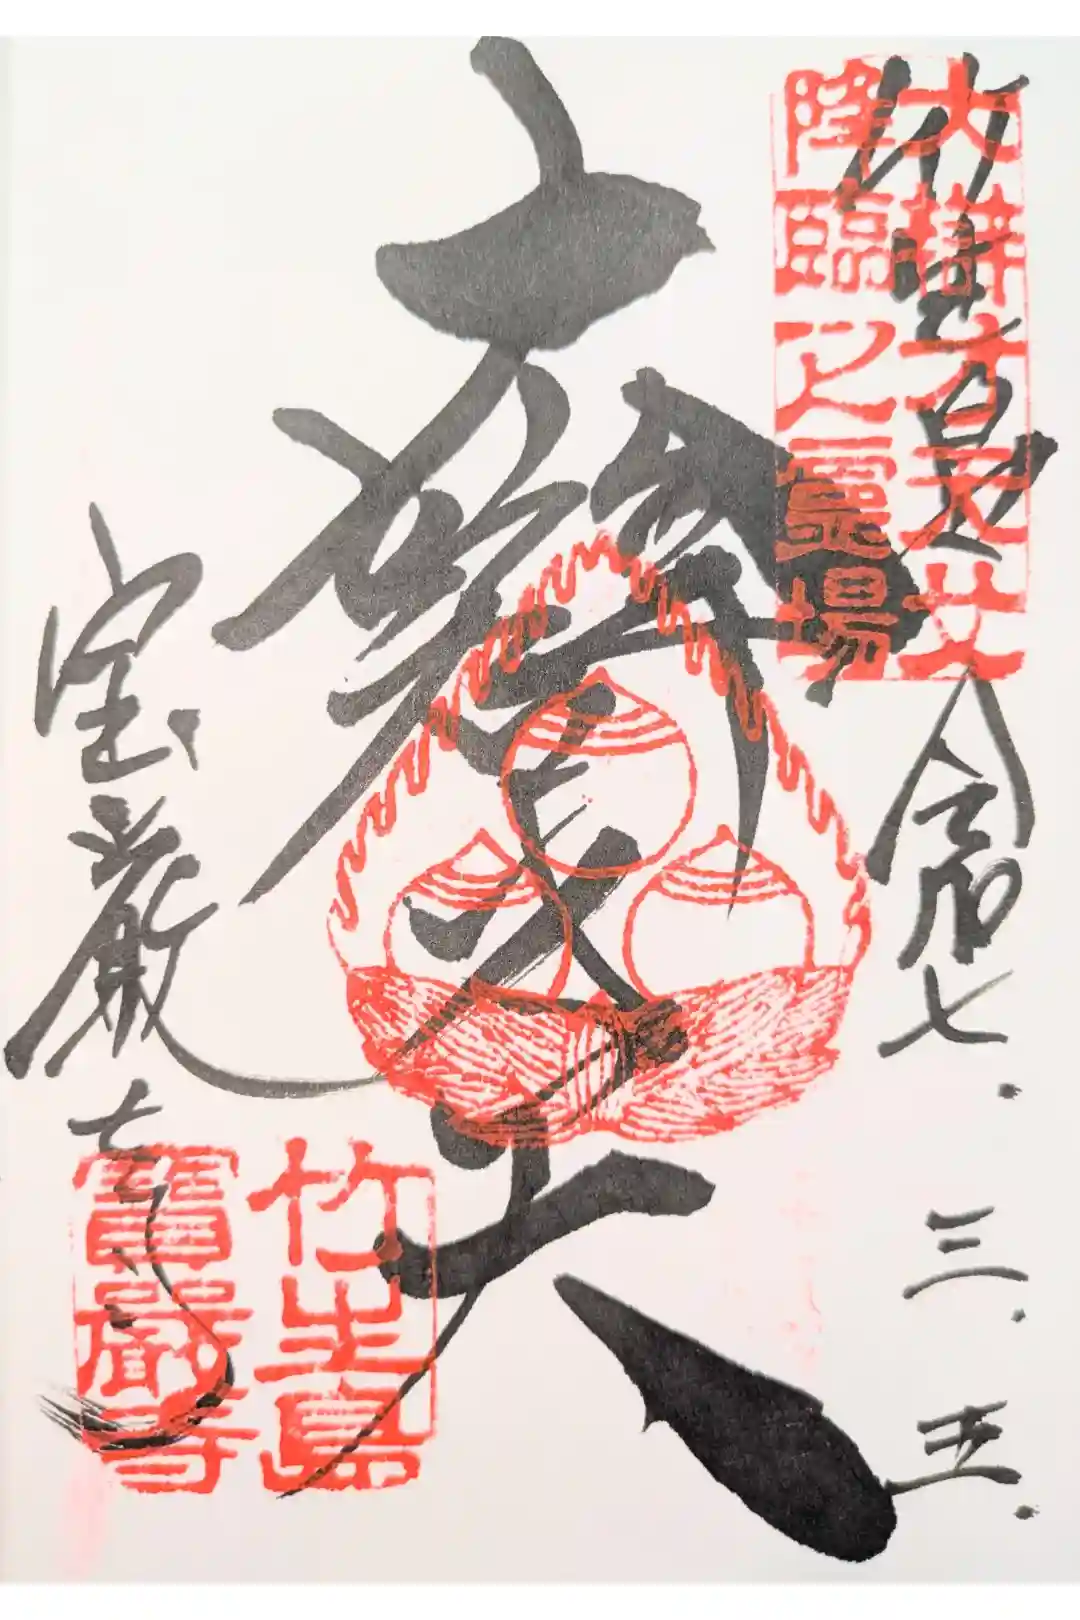 大辯才天女
降臨之霊場
令和七.三.五.
辯才天
宝厳寺
竹生島
寶嚴寺